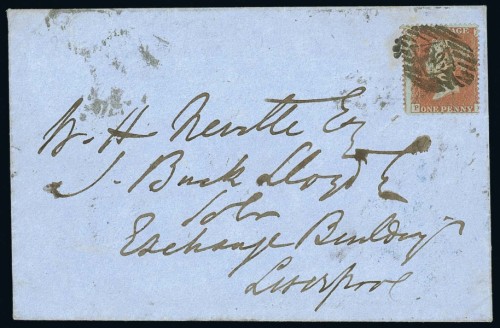 AGE
F ONE PENNY
W. H. Neville Esq
J. Buck Lloyd
Exchange Buildings
Liverpool